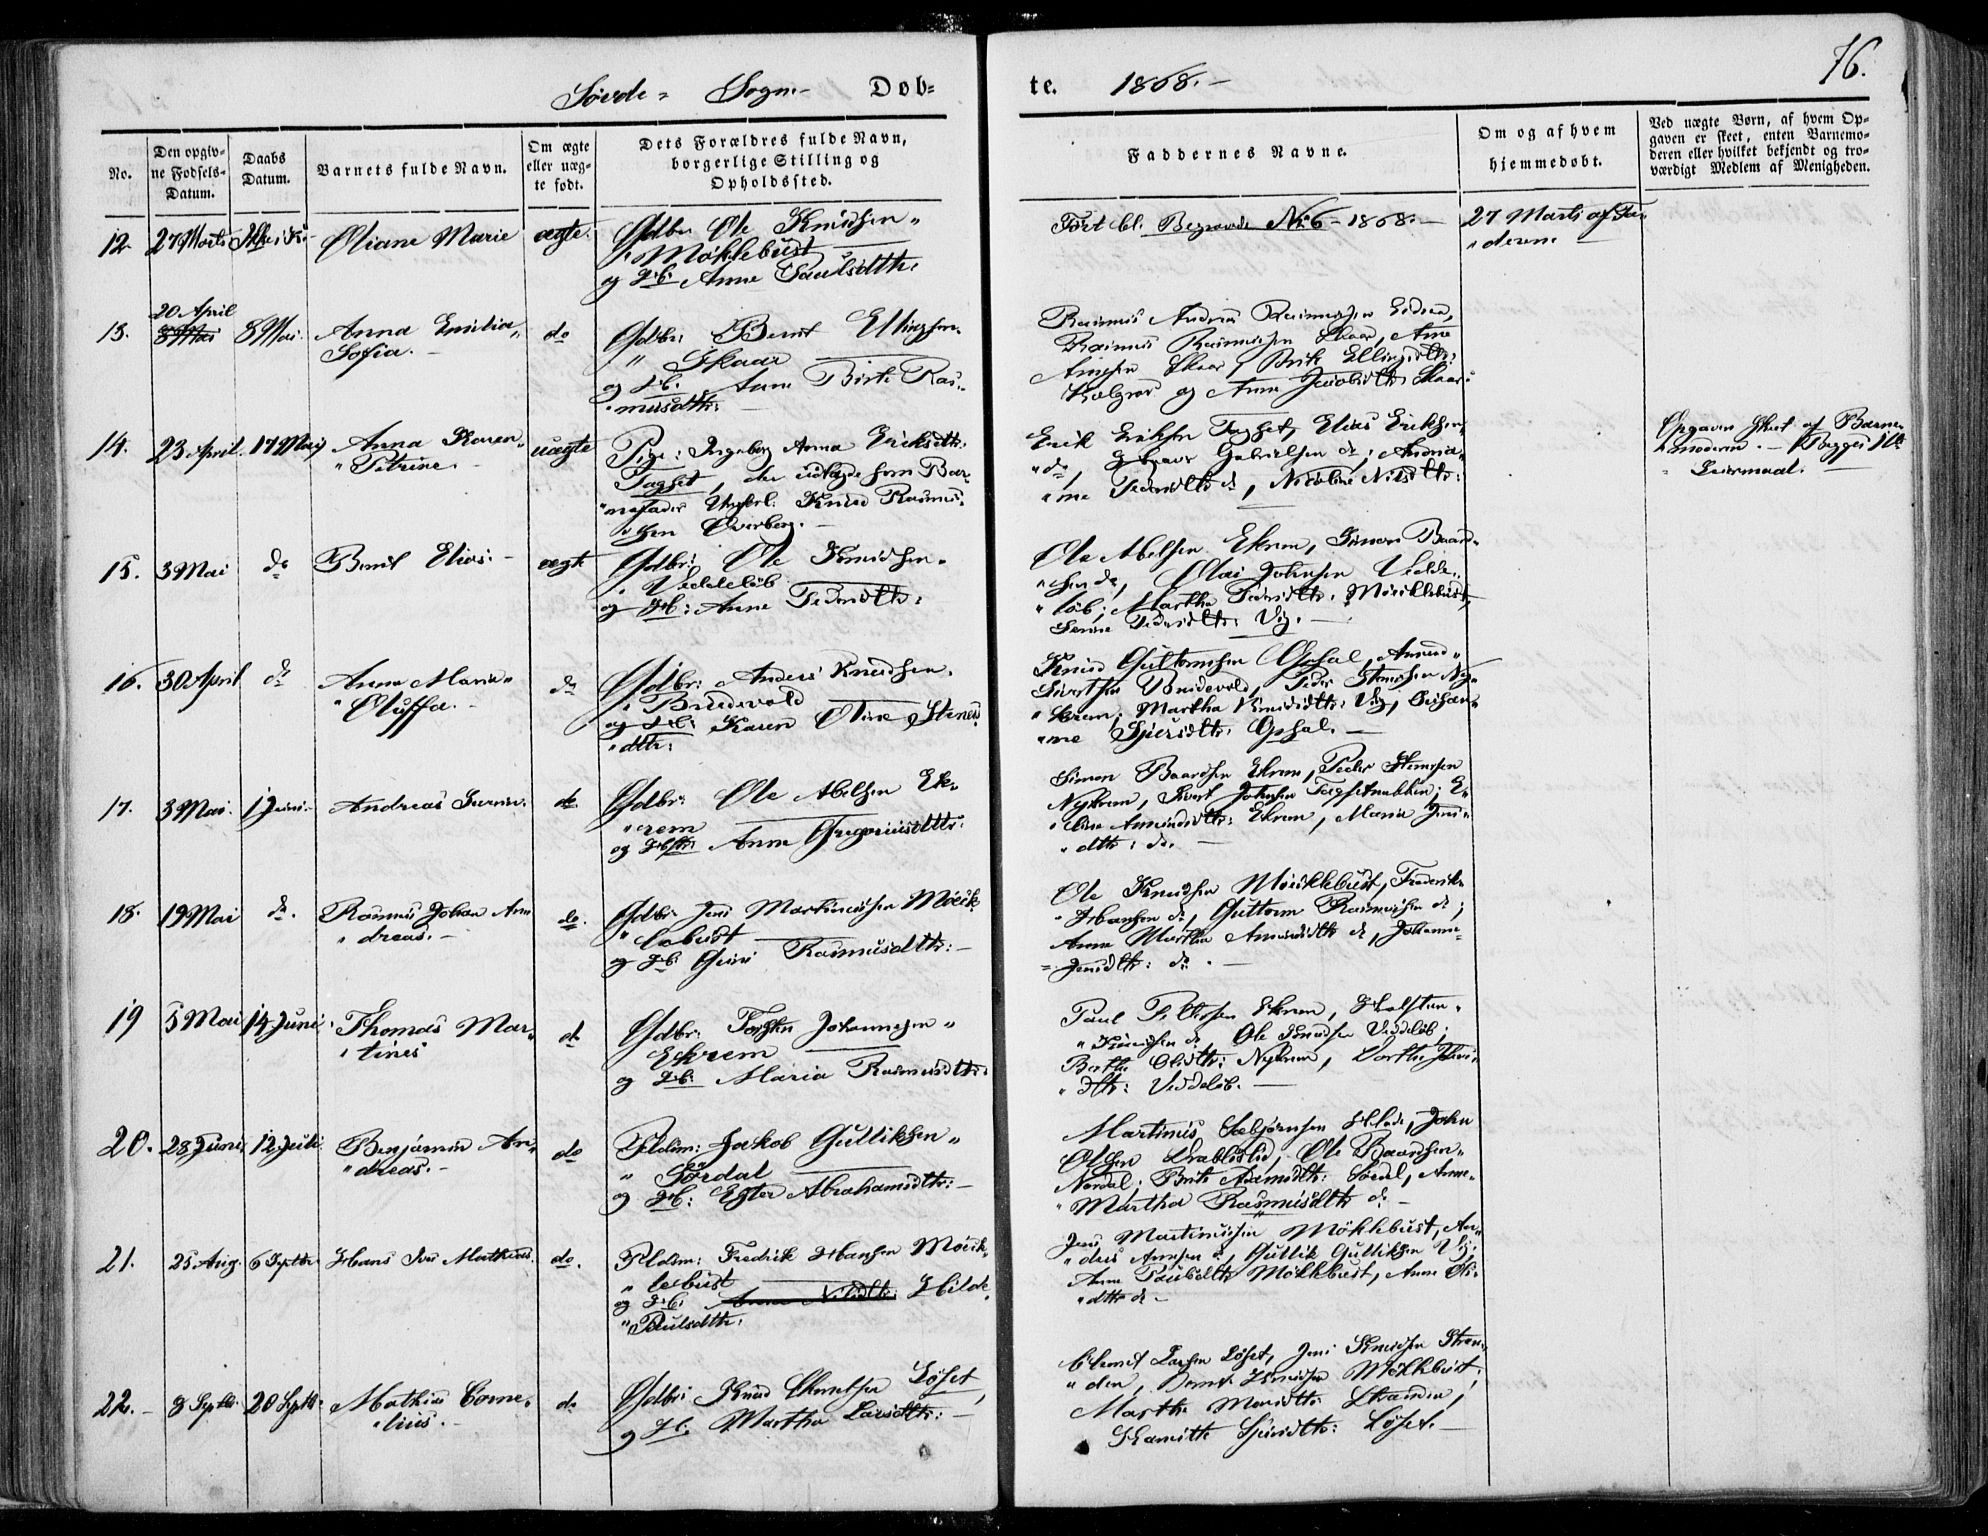 Søvde = Sogn. Døb=
te. 1868.
76.
No.
Den opgiv-
ne Fødsels-
Datum.
Daabs
Datum.
Barnets fulde Navn.
Om ægte
eller uæg-
te født.
Dets Forældres fulde Navn,
borgerlige Stilling og
Opholdssted.
Faddernes Navne.
Om og af hvem
hjemmedøbt.
Ved uægte Børn, af hvem Op-
gaven er skeet, enten Barnemo-
deren eller hvilket bekjendt og tro-
værdigt Medlem af Menigheden.
12. 27 Marts Oliane Marie ægte. Gdbr. Ole Knudsen "
Møklebust
og Hb. Anne Paulsdttr.
Ført bl. Begravede No 6 - 1868. -
27 Marts af Fa-
" deren
13. 20 April
8 Mai 8 Mai. Anna Emilia,
Sofia. -
do Gdbr: Bernt Ellingsen
" Skaar
og Hb. Anne Birte Ras-
musdttr:
Rasmus Andreas Rasmussen
Rasmus Rasmussen Skaar, Arne
Arnesen Skaar, Brite Ellingsdttr:
og Anne Jacobsdttr. Skaar:
14. 23 April. 17 Mai Anna Karen
" Petrine. -
uægte Pige: Ingeborg Anna Eriksdttr.
Fagset, der udlagde som Bar-
" nefader Ungkrl: Knud Rasmus-
" sen Øverberg. -
Erik Eriksen Fagset, Elias Eriksen
" do, Gabrielsen do; Andria-
" ne Pedersdttr do, Nicoline Nilsdttr:
Opgaven skeet af Barne-
" moderen. - Begges 1ste
Leiermaal.
15. 3 Mai do Bernt Elias. - ægte Gdbr: Ole Knudsen.
" Veddeløb
og Hb: Anne Pedersdttr:
Ole Abelsen Ekrem, Simon Baard-
" sen do, Olai Johnsen Vedde-
" løb; Martha Pedersdttr: Møiklebust,
Pedersdttr: Vig. -
16. 30 April do Anne Maria
" Oluffa. -
do Gdbr: Anders Knudsen.
" Brudevold
og Hb: Karen Oline Stenes
" dttr:
Knud Guttormsen Opsal, Amund
Sivertsen Brudevold, Peder Stensen Ny-
" krem, Martha Knudsdttr: Vig,
" ne Sjursdttr: Opsal. -
17. 3 Mai. 1 Juni. Andreas do Gdbr: Ole Abelsen Ek-
" rem
og Hb: Anne Gregoriusdttr.
Simon Baardsen Ekrem, Peder Stensen
Nykrem, Sivert Johnsen Fagsetnakken; E-
" line Amundsdttr: Ekrem, Maria Jens-
" dttr: do. -
18. 19 Mai do. Rasmus Johan An
" dreas. -
do. Gdbr. Jens Martinussen Møik-
" lebust
og Hb. Guri Rasmusdttr: -
Ole Knudsen Møiklebust, Frederik
" Hansen do, Guttorm Rasmussen do;
Anne Martha Amundsdttr do, Johanne
= Jensdttr: do. -
19 5 Mai 14 Juni. Thomas Mar-
" tines
do Gdbr: Torsten Johannesen "
Ekrem
og Hb: Maria Rasmusdttr:
Paul Pettersen Ekrem,
" Knudsen do, Ole Knudsen Veddeløb;
Berthe Olsdttr: Nykrem, Dorthe
" dttr: Veddeløb. -
20. 28 Juni. 12 Juli Benjamin An-
" dreas. -
do Pldsm: Jakob Gulliksen "
" Sørdal
og Hb: Ester Abrahamsdttr: -
Martinus Asbjørnsen John
Olsen Ole Baardsen
Nordal; Brite Sørdal, Anne
" Martha Rasmusdttr do -
21. 25 Aug. 6 Septbr Hans Iver Mathias. do. Pldsm: Fredrik Hansen Møik-
" lebust
og Hb: Anne Nilsdttr: Hilde
" Paulsdttr:
Jens Martinussen Møklebust, An-
" dreas Arnesen do, Gullik Gulliksen Vig;
Anne Paulsdttr Møklebust, Anne Ols-
" dttr do -
22. - 8 Septbr. 20 Septbr. Mathias Corne-
" lius. -
do Gdbr: Knud Clemetsen Løset,
og Hb. Martha Larsdttr: -
Clemet Larsen Løset, Jens Knudsen Stran-
" den, Bernt Knudsen Møklebust;
Marthe Monsdttr: Stranden,
Sjursdttr: Løset. -